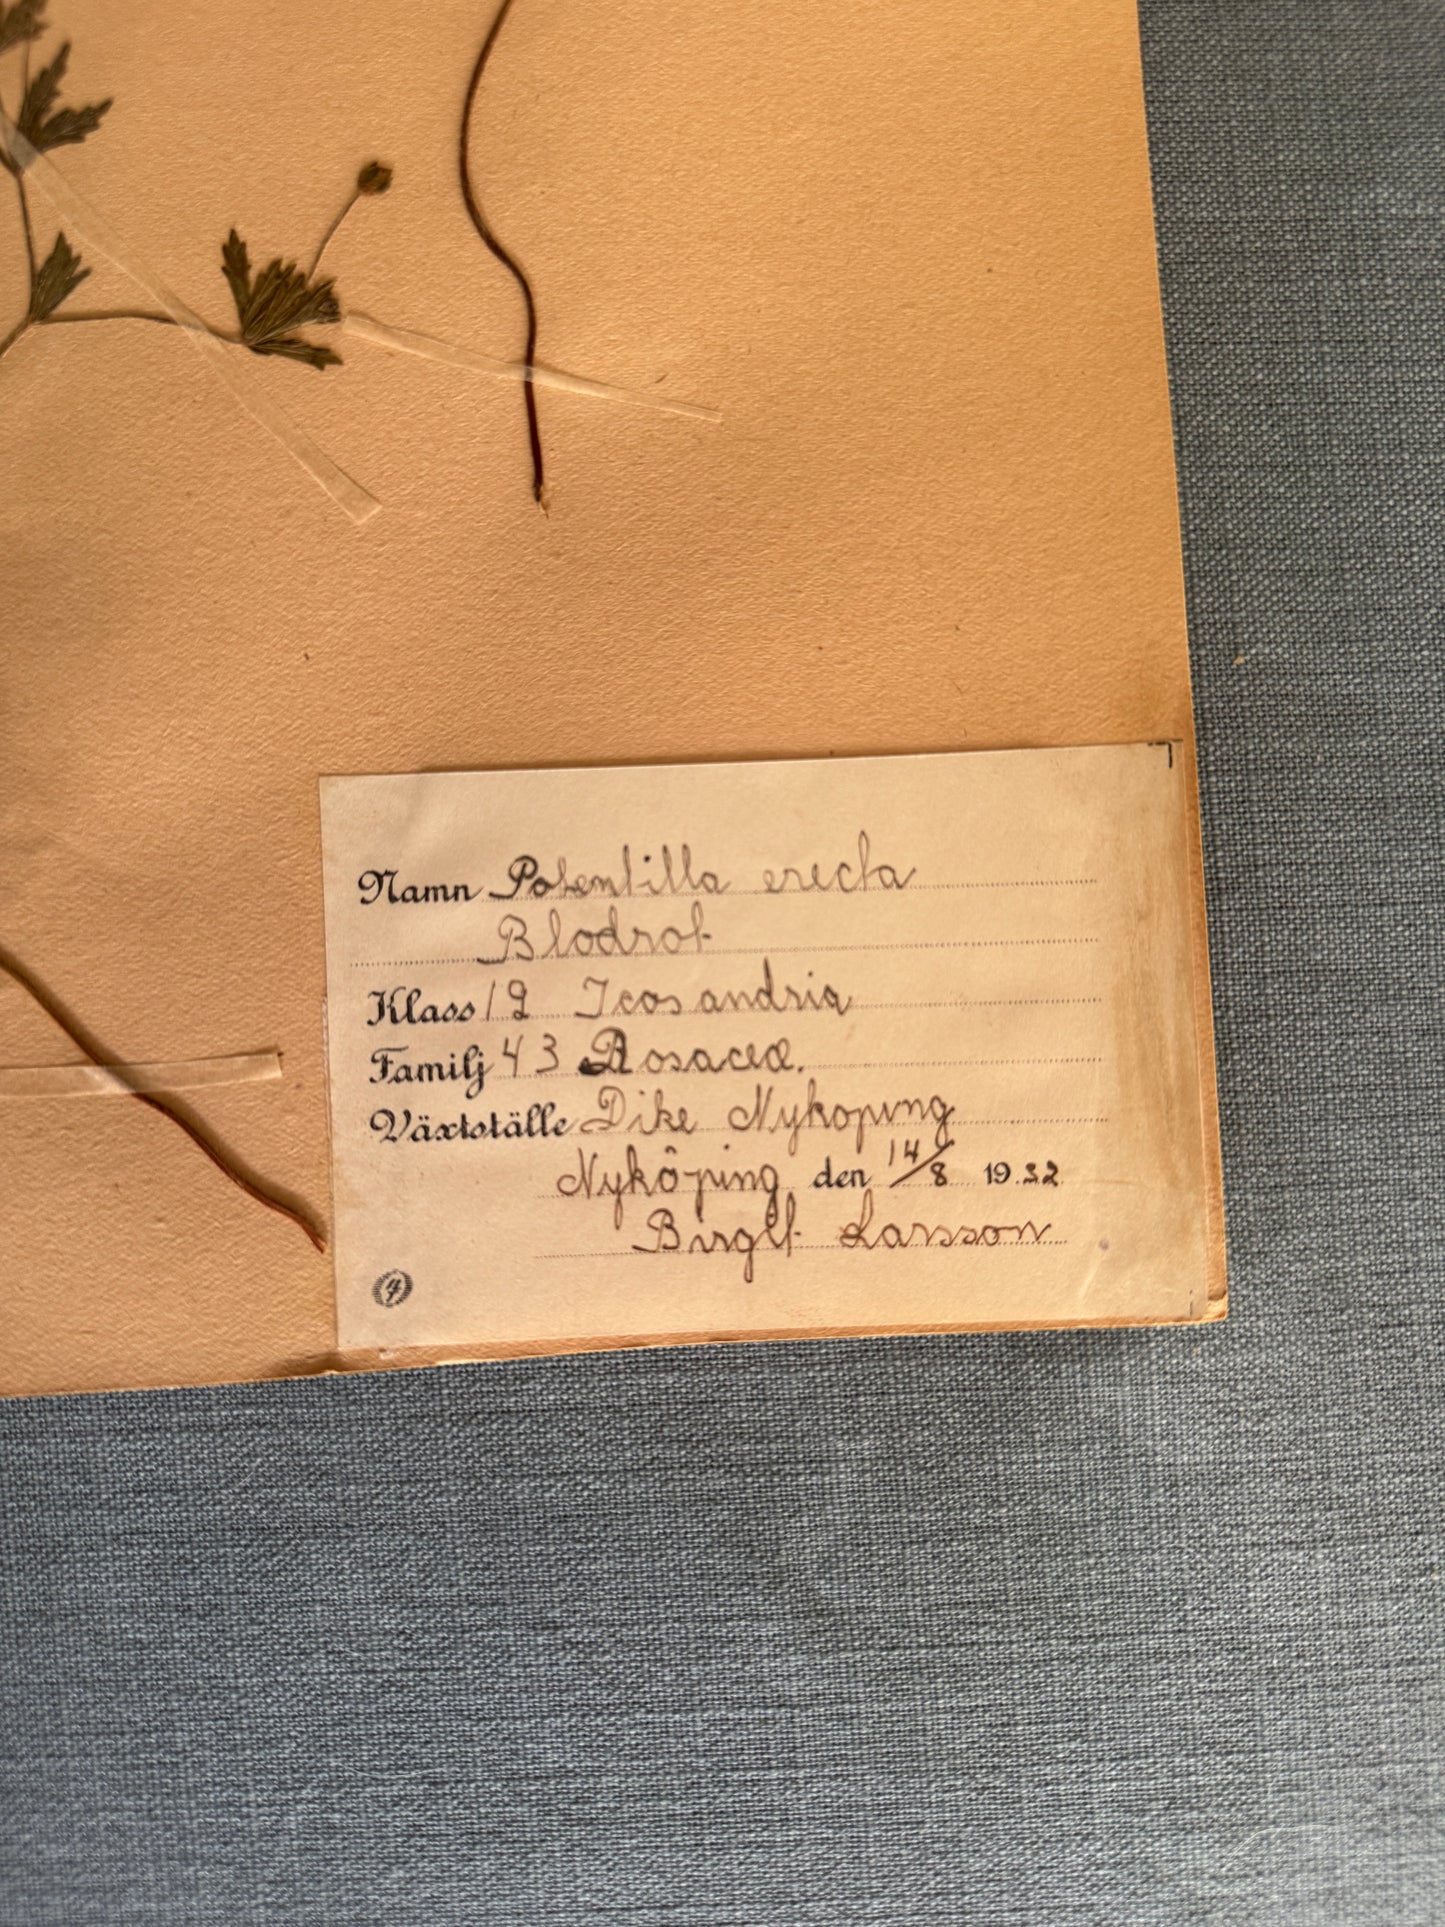 Namn Potentilla erecta
Blodrot
Klass 12 Icosandria
Familj 43 Rosaceæ.
Växtställe Dike Nykoping
Nyköping den 14/8 1932
Birgit Larsson
4